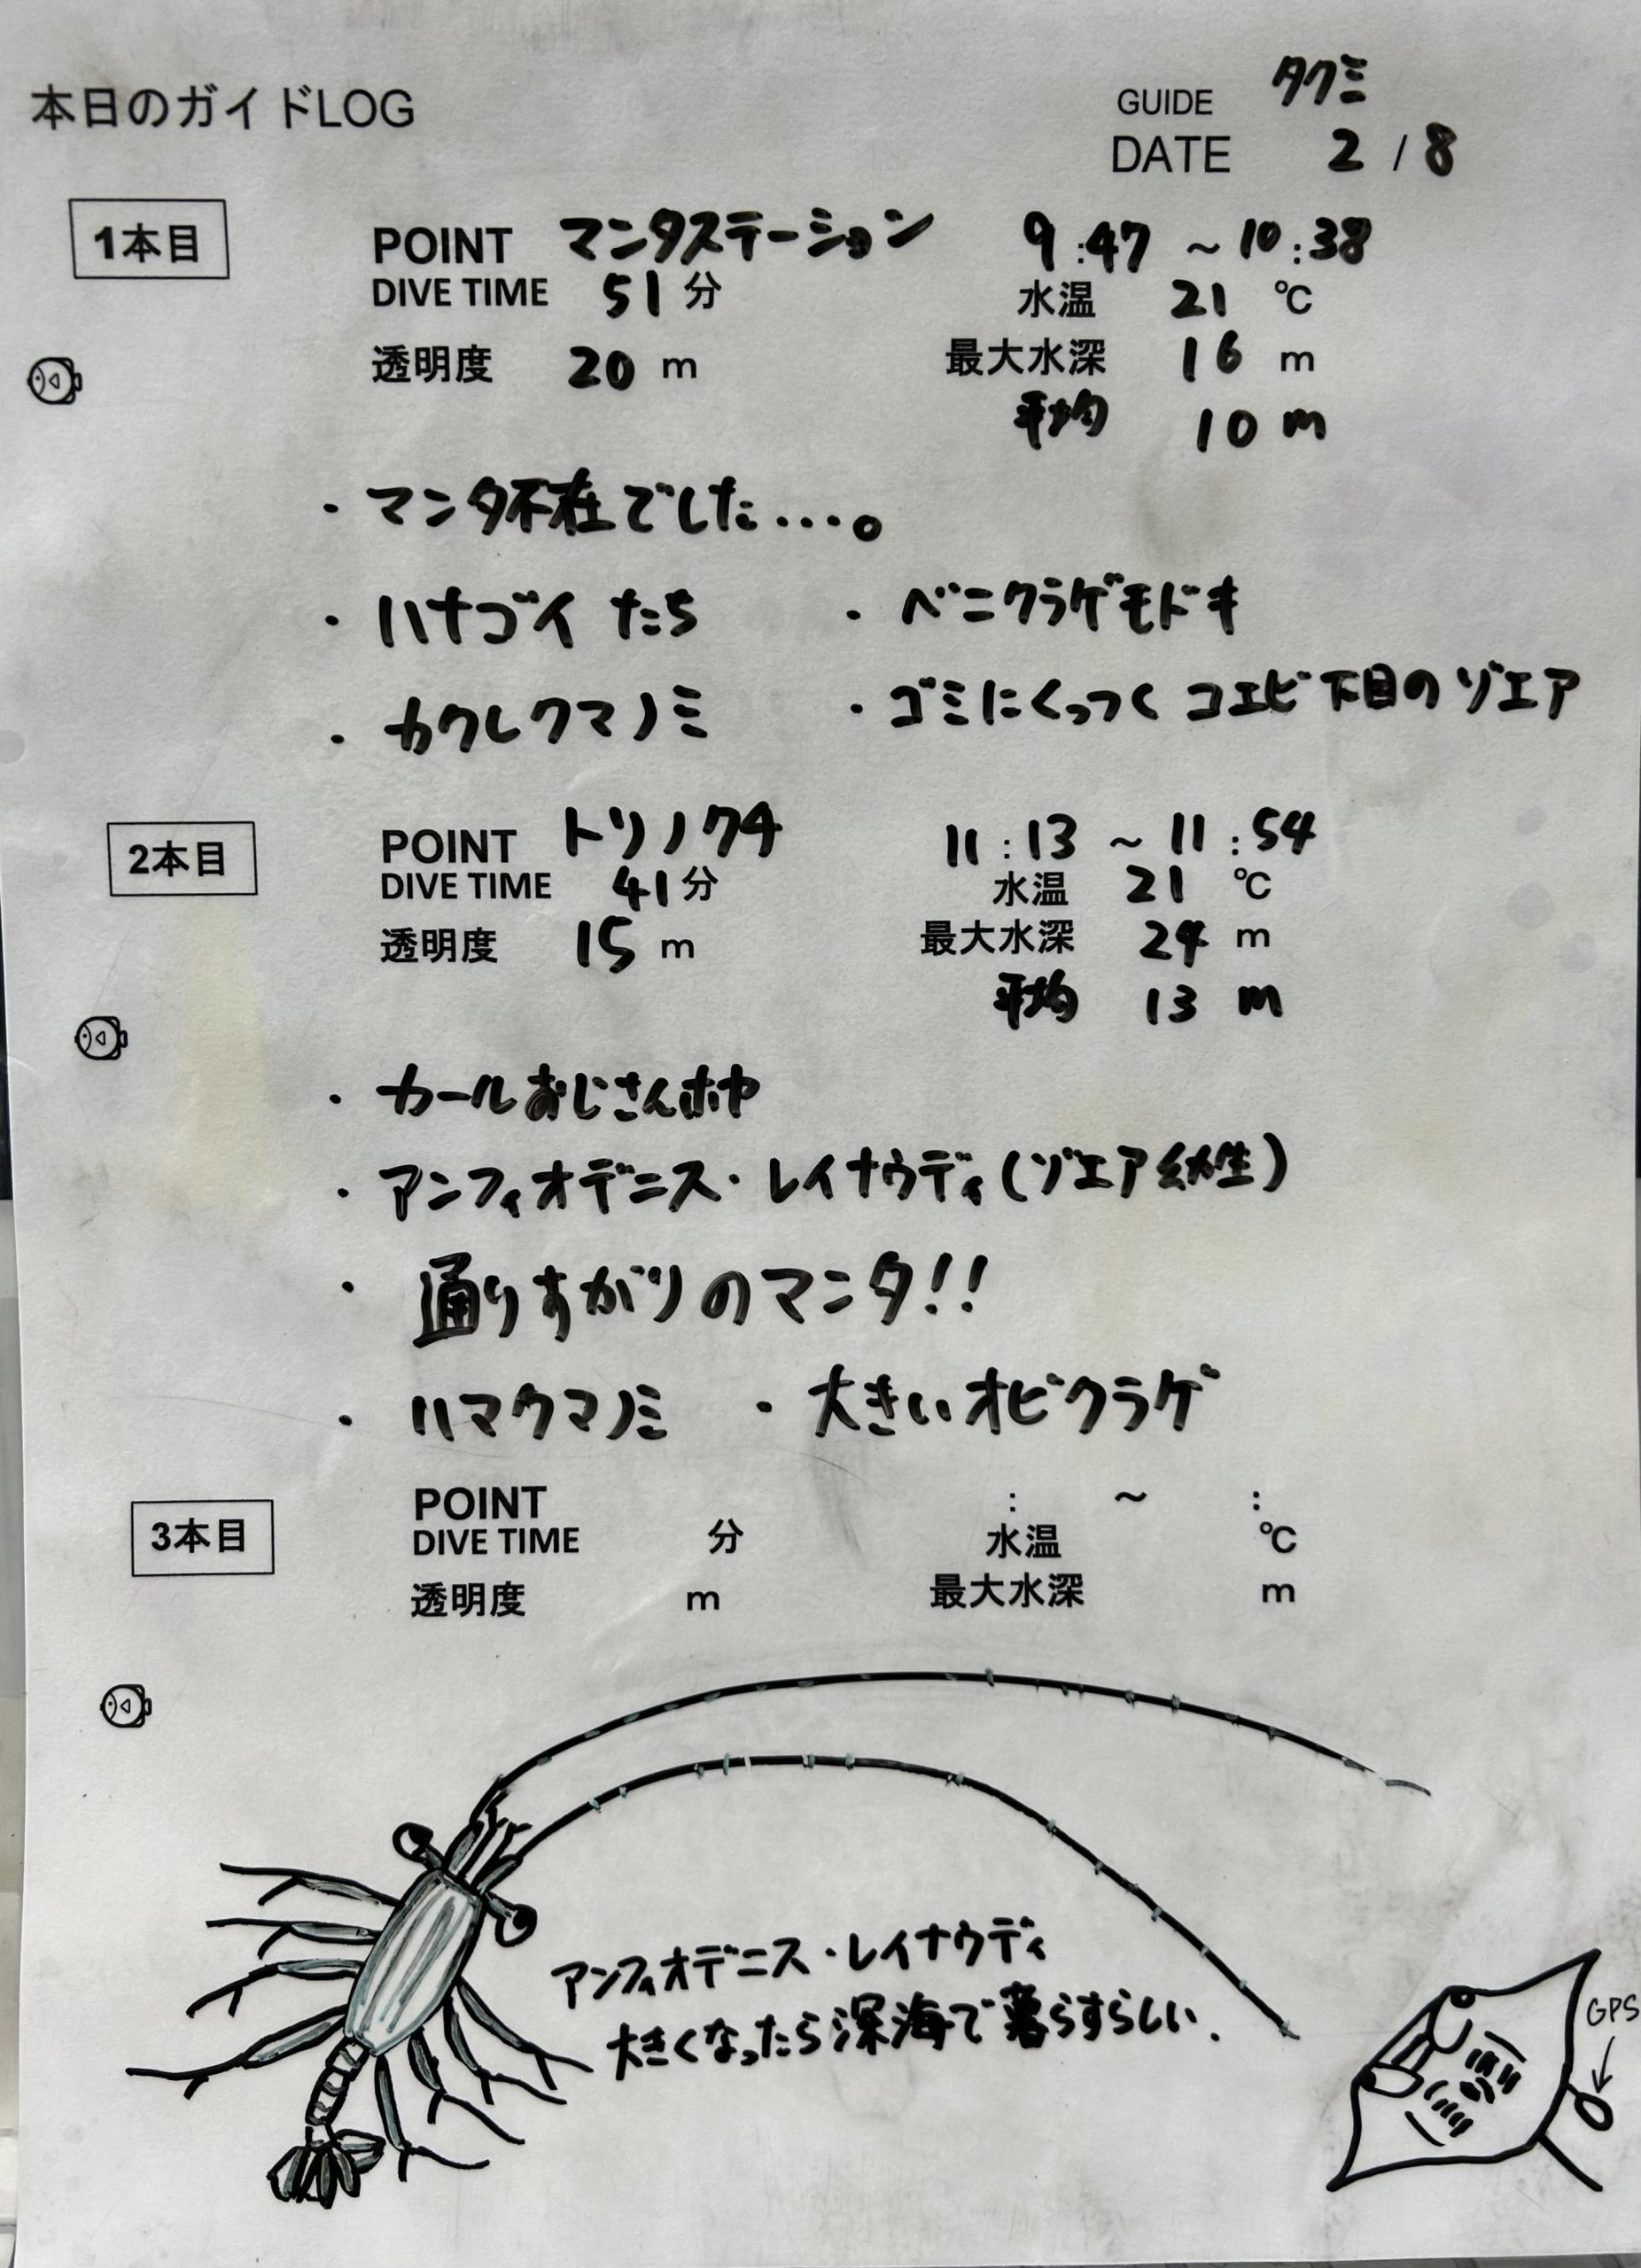 本日のガイドLOG
GUIDE タクミ
DATE 2 / 8
1本目
POINT マンタステーション 9:47 ~ 10:38
DIVE TIME 51 分 水温 21 ℃
透明度 20 m 最大水深 16 m
平均 10 m
・マンタ不在でした…。
・ハナゴイたち ・ベニクラゲモドキ
・カクレクマノミ ・ゴミにくっつくコエビ下目のゾエア
2本目
POINT トリノクチ 11:13 ~ 11:54
DIVE TIME 41 分 水温 21 ℃
透明度 15 m 最大水深 24 m
平均 13 m
・カールおじさんホヤ
・アンフィオデニス・レイナウディ(ゾエア幼生)
・通りすがりのマンタ!!
・ハマクマノミ ・大きいオビクラゲ
3本目
POINT : ~ :
DIVE TIME 分 水温 ℃
透明度 m 最大水深 m
アンフィオデニス・レイナウディ
大きくなったら深海で暮らすらしい.
GPS